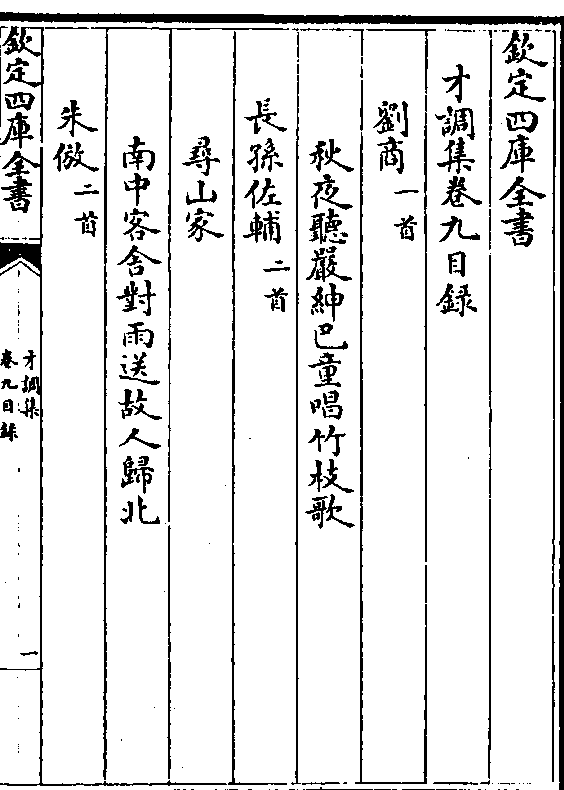 欽定四庫全書
才調集卷九目録
劉商一首
秋夜聽嚴紳巴童唱竹枝歌
長孫佐輔二首
尋山家
南中客舍對雨送故人歸北
朱倣二首
欽定四庫全書
才調集
卷九目録
一